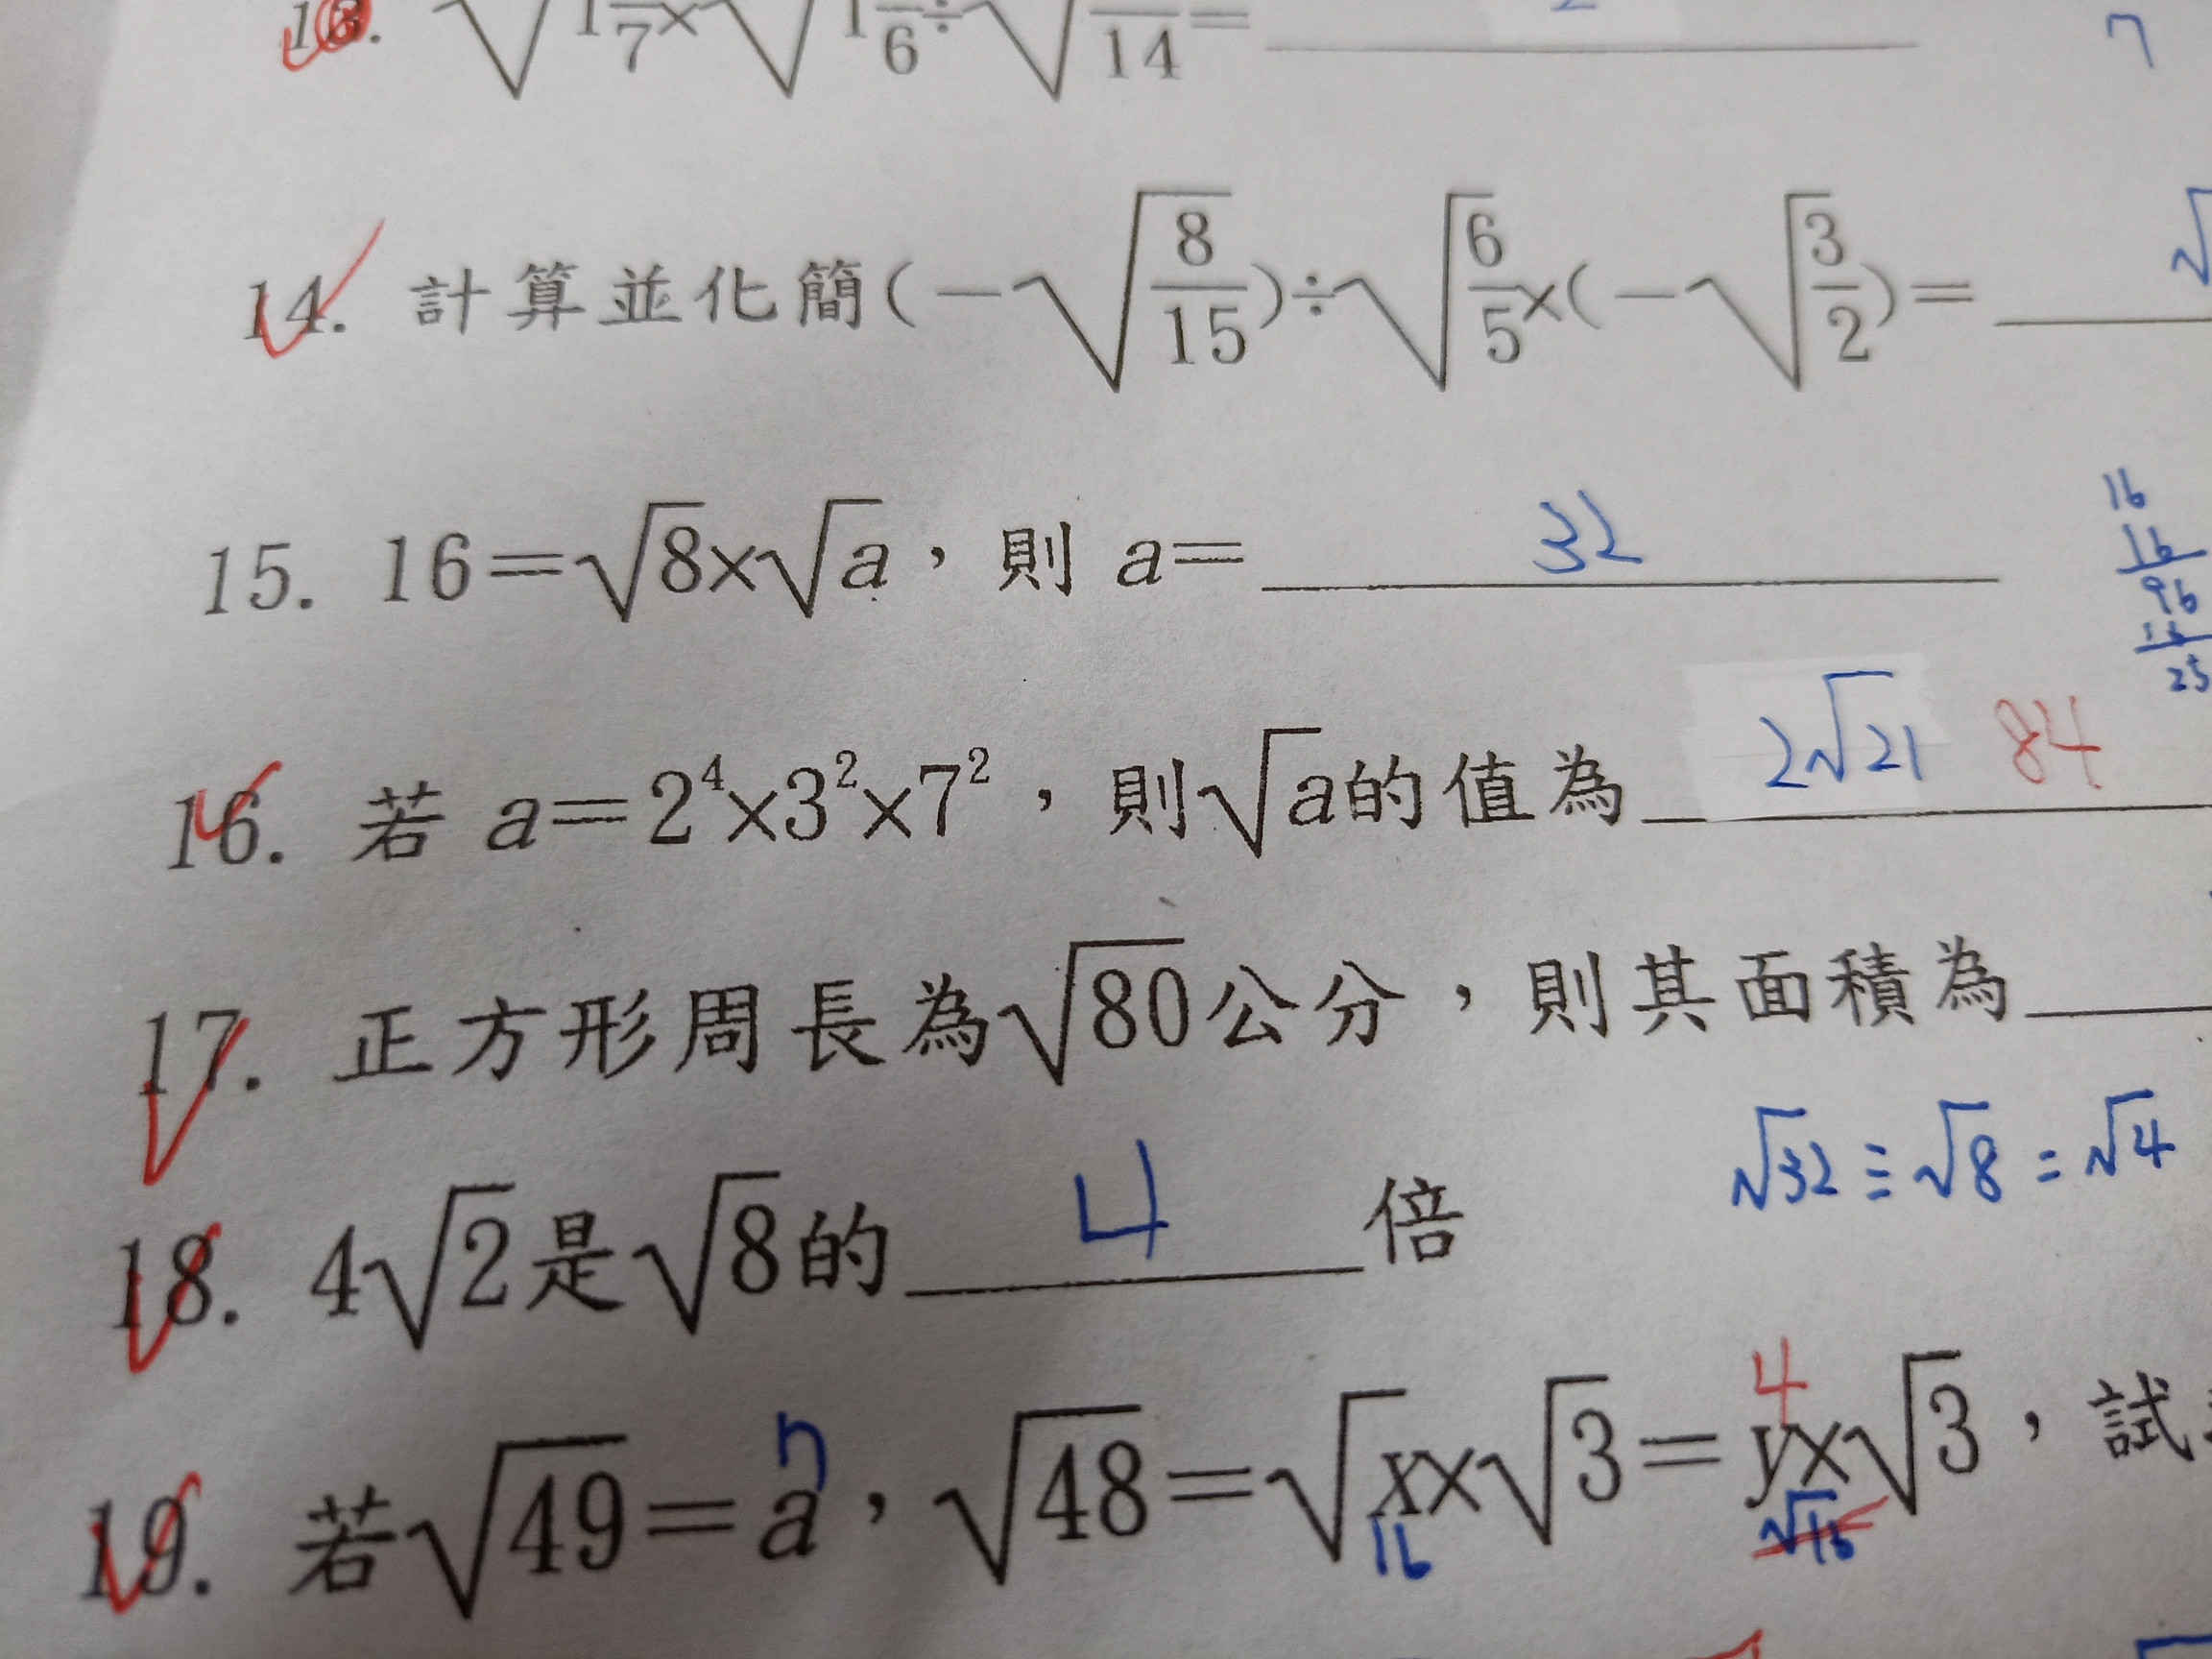 13. √1 /7 × √1 /6 ÷ √ /14 = 7
14. 計算並化簡(−√8/15)÷√6/5×(−√3/2)= √
15. 16=√8×√a，則 a= 32
16
16
96
16
25
16. 若 a=2⁴×3²×7²，則√a的值為 2√21 84
17. 正方形周長為√80公分，則其面積為
√32÷√8=√4
18. 4√2是√8的 4 倍
4
7
19. 若√49=a，√48=√x×√3=y×√3，試
16 √16